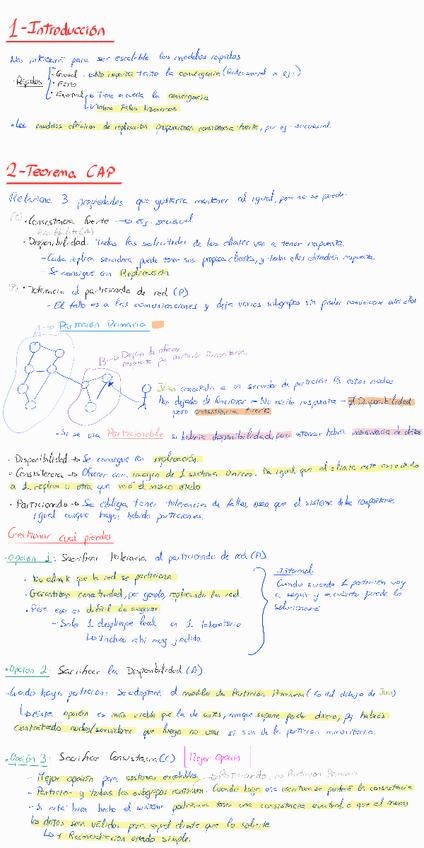 1-Introducción
Nos interesan para ser escalable los modelos rápidos
Rápidos
· Causal
No importa tanto la convergencia
· FIFO
· Eventual
Tiene en cuenta la convergencia
· Los modelos clásicos de replicación proporcionan consistencia fuerte, por ej. secuencial.
2-Teorema CAP
Relaciona 3 propiedades que gustaría mantener al igual, pero no se puede.
(C) · Consistencia fuerte → ej. secuencial
· Disponibilidad. Todas las solicitudes de los clientes van a tener respuesta.
- Cada réplica servidora puede tener sus propios clientes, y todos ellos obtendrán respuesta.
Se consigue con Replicación
· Tolerancia al particionado de red (P)
- El fallo es a las comunicaciones y deja varios subgrupos sin poder comunicarse entre ellos
A → Partición Primaria
B → Dejan de ofrecer respuesta por partición minoritaria
Juan conectado a un servidor de partición B estos nodos
Han dejado de funcionar → No recibe respuesta → Disponibilidad
pero consistencia fuerte
- Si se usa Particionable si habría disponibilidad, pero
· Disponibilidad → Se consigue con replicación
· Consistencia → Ofrecer con imagen de 1 sistema único. Da igual que el cliente esté conectado
a 1 réplica u otra que verá el mismo estado
· Particionado → Se obliga tener tolerancia de fallos, osea que el sistema debe comportarse
igual aunque haya habido particiones.
Gestionar cual pierdes
· Opción 1: Sacrificar tolerancia al particionado de red (P)
· No admite que la red se particione
· Garantizar conectividad, por ejemplo, replicando la red
· Pero eso es difícil de asegurar
- Solo 1 despliegue local en 1 laboratorio
Incluso ahí muy jodido
Cuando cuando 1 partición voy
a seguir y cuanto pierdo lo
solucione
· Opción 2: Sacrificar la Disponibilidad (A)
Cuando haya partición. Se adoptará el modelo de Partición Primaria (lo del dibujo de Juan)
Esta opción es más viable que la de antes, aunque supone perder dinero, pq habrás
contratado nodos/servidores que luego no usas si son de la partición minoritaria.
· Opción 3: Sacrificar Consistencia (C) Mejor opción
- Mejor opción para sistemas escalables. → Particionado, no Partición Primaria
- Partición y todos los subgrupos continúan. Cuando haya una escritura se perderá la consistencia
- Si esta bien hecho el sistema podríamos tener una consistencia eventual o que al menos
los datos sean válidos para aquel cliente que lo solicite
Reconciliación estado simple.